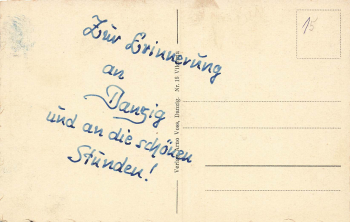 Zur Erinnerung
an
Danzig
und an die schönen
Stunden!
Verlag Arno Voss, Danzig. Nr. 15
15